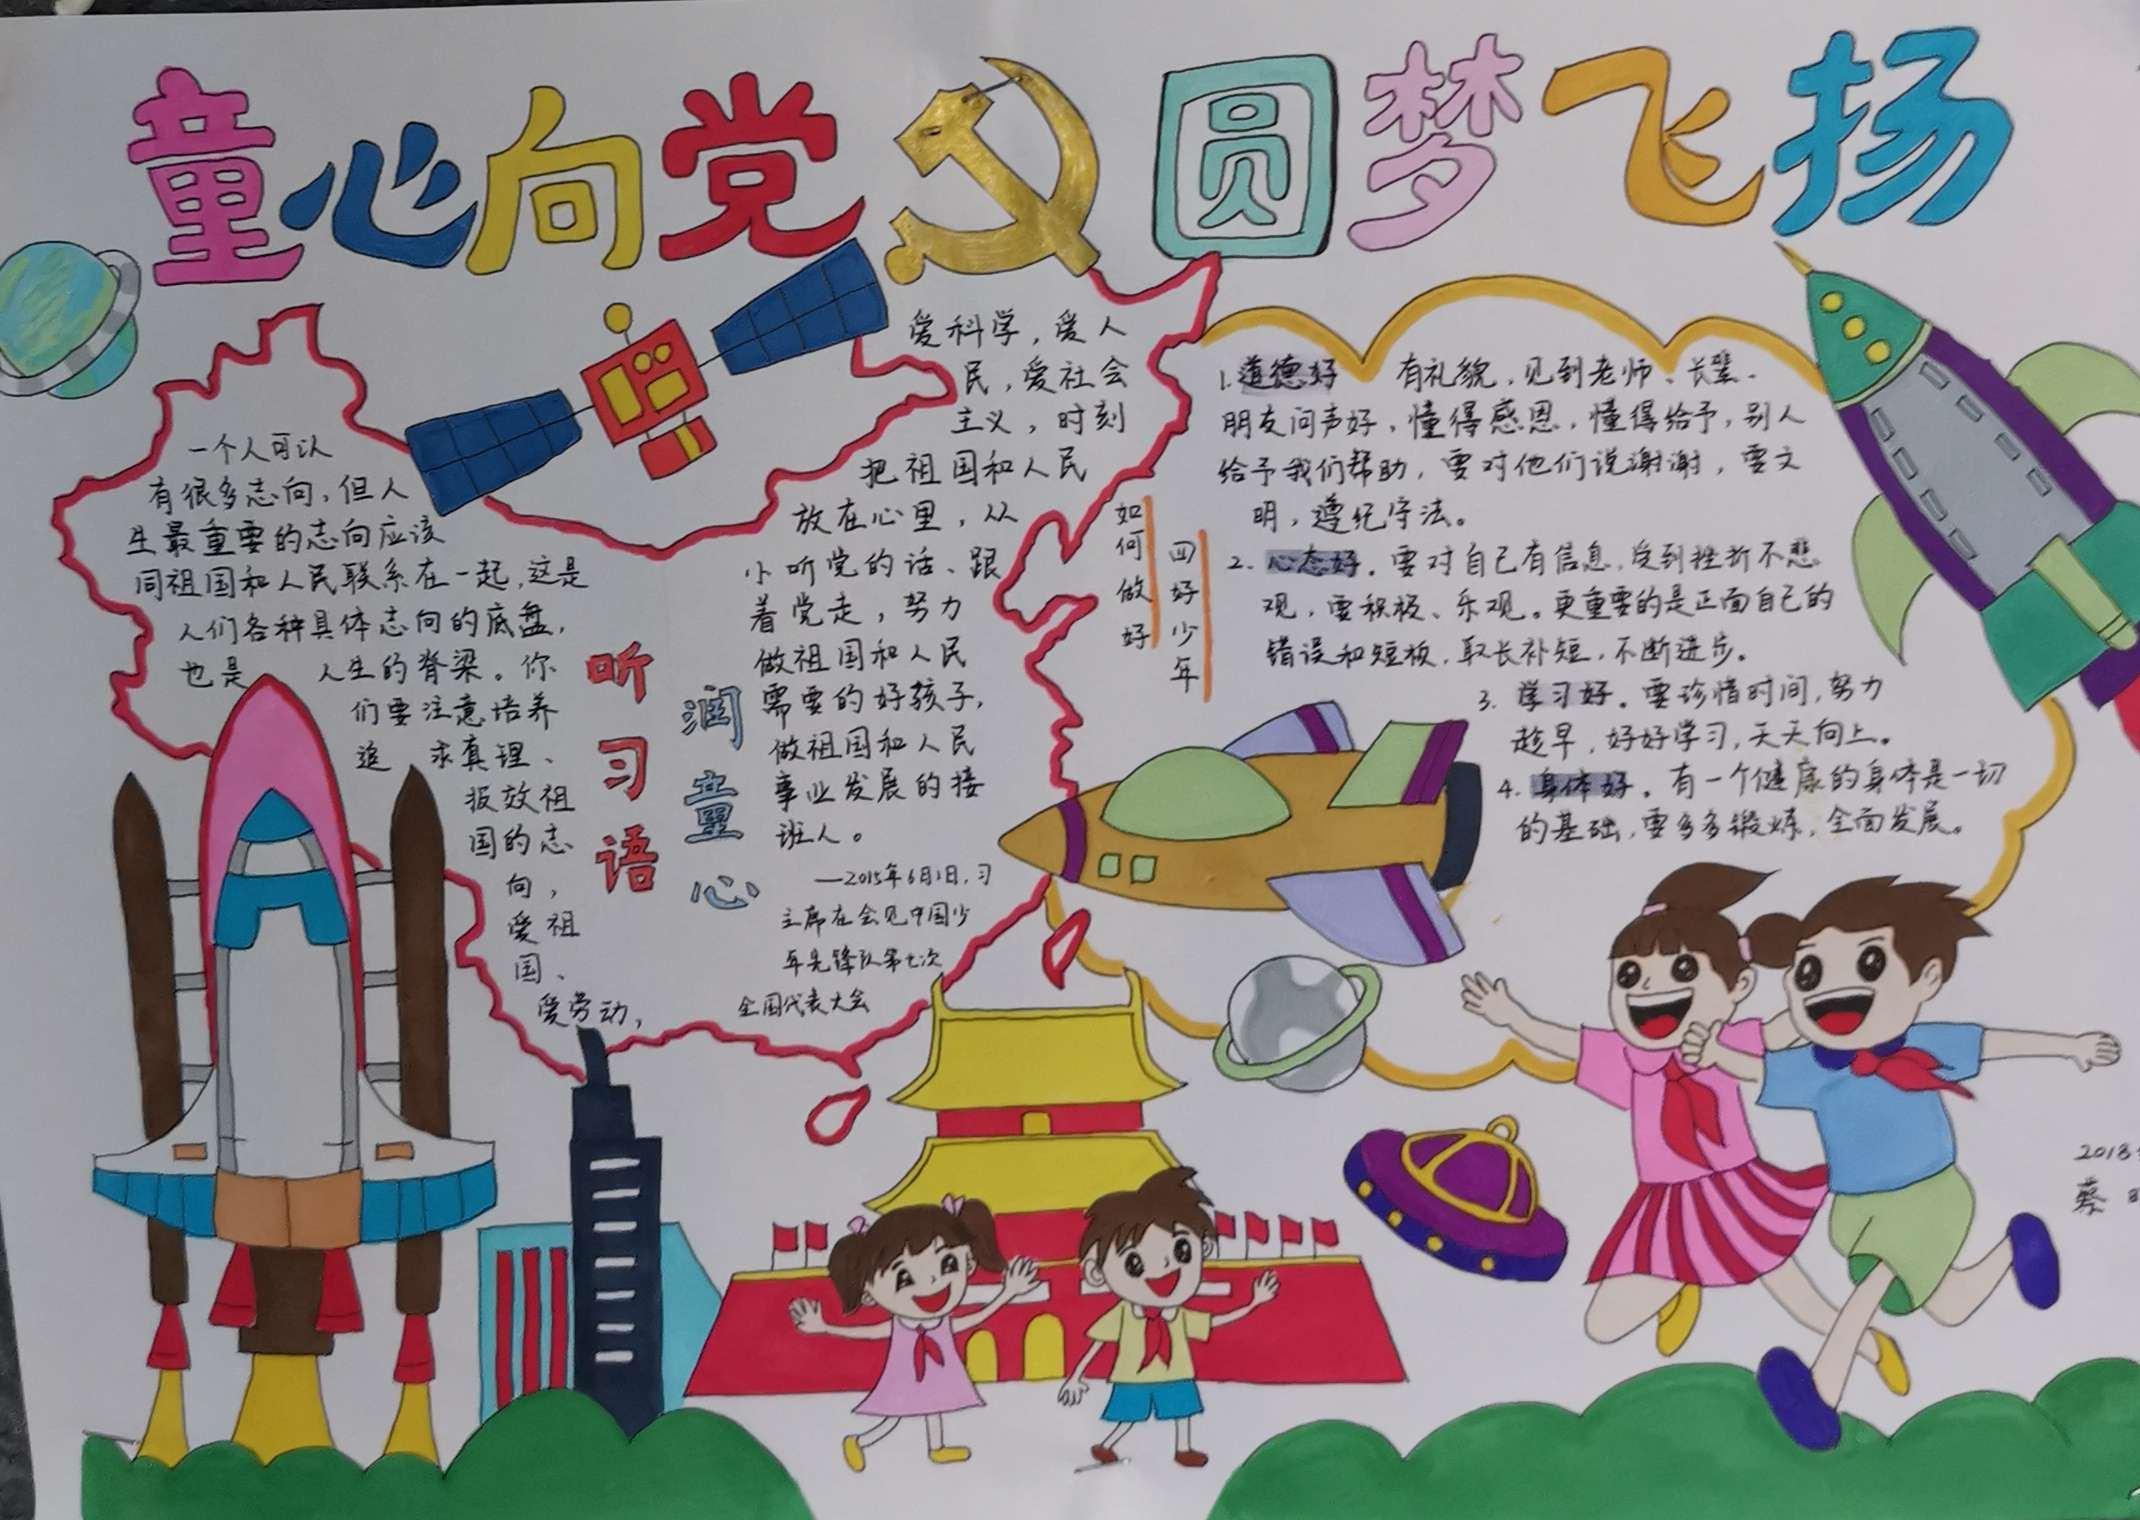 童心向党 圆梦飞扬
一个人可以
有很多志向，但人
生最重要的志向应该
同祖国和人民联系在一起，这是
人们各种具体志向的底盘，
也是 人生的脊梁。你
们要注意培养
追 求真理、
报效祖
国的志
向，
爱祖
国、
爱劳动，
听习语
润童心
爱科学，爱人
民，爱社会
主义，时刻
把祖国和人民
放在心里，从
小听党的话、跟
着党走，努力
做祖国和人民
需要的好孩子，
做祖国和人民
事业发展的接
班人。
—2015年6月1日，习
主席在会见中国少
年先锋队第七次
全国代表大会
如何做好
四好少年
1. 道德好 有礼貌，见到老师、长辈、
朋友问声好，懂得感恩，懂得给予，别人
给予我们帮助，要对他们说谢谢，要文
明，遵纪守法。
2. 心态好。要对自己有信息，受到挫折不悲
观，要积极、乐观。更重要的是正面自己的
错误和短板，取长补短，不断进步。
3. 学习好。要珍惜时间，努力
趁早，好好学习，天天向上。
4. 身体好。有一个健康的身体是一切
的基础，要多多锻炼，全面发展。
2018
蔡